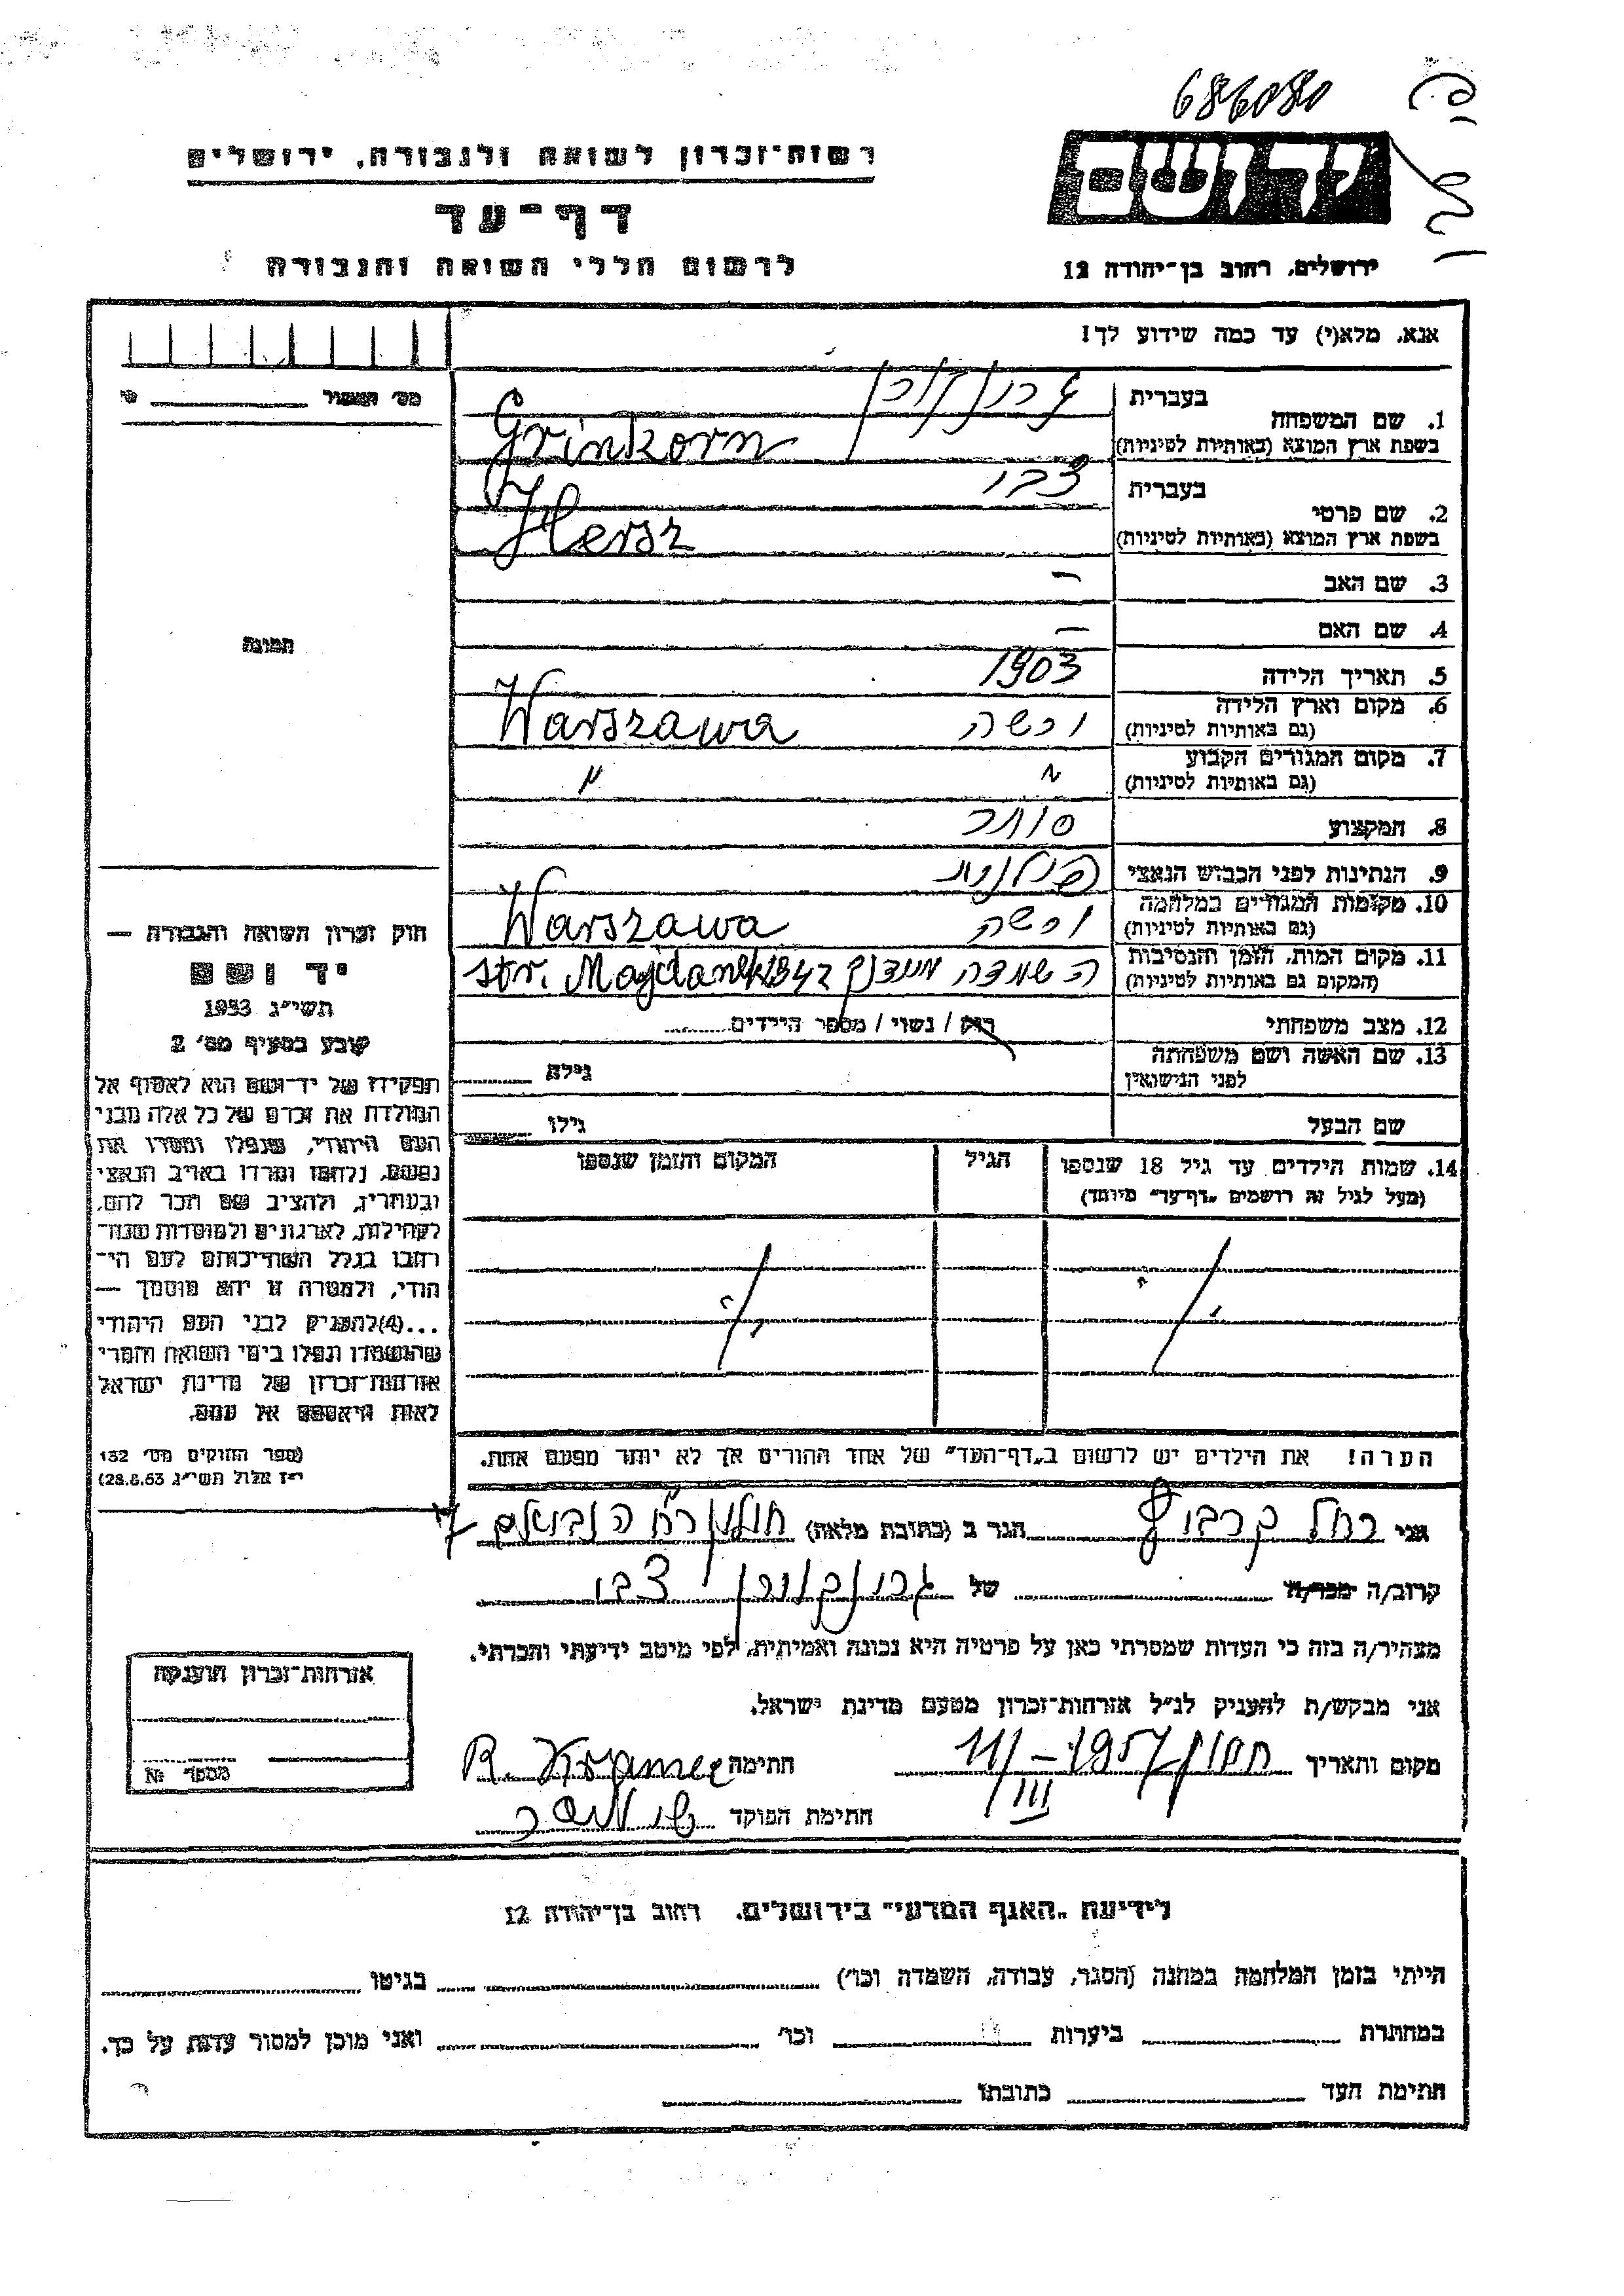 686080
רשות־זכרון לשואה ולגבורה, ירושלים
יד ושם
דף־עד
לרשום חללי השואה והגבורה
ירושלים, רחוב בן־יהודה 12
אנא, מלא(י) עד כמה שידוע לך!
1. שם המשפחה
בעברית
בשפת ארץ המוצא (באותיות לטיניות) Grinkorn
2. שם פרטי
בעברית צבי
בשפת ארץ המוצא (באותיות לטיניות) Hersz
3. שם האב —
4. שם האם —
תמונה
5. תאריך הלידה 1903
6. מקום וארץ הלידה
(גם באותיות לטיניות) ורשה Warszawa
7. מקום המגורים הקבוע
(גם באותיות לטיניות) " "
8. המקצוע סוחר
9. הנתינות לפני הכבוש הנאצי פולנית
10. מקומות המגורים במלחמה
(גם באותיות לטיניות) ורשה Warszawa
11. מקום המות, הזמן והנסיבות
(המקום גם באותיות לטיניות) השמדה מידנק 1942 str. Majdanek
12. מצב משפחתי רווק / נשוי / מספר הילדים
13. שם האשה ושם משפחתה
לפני הנישואין גילה
שם הבעל גילו
14. שמות הילדים עד גיל 18 שנספו הגיל המקום והזמן שנספו
(מעל לגיל זה רושמים „דף־עד" מיוחד)
הערה! את הילדים יש לרשום ב„דף־העד" של אחד ההורים אך לא יותר מפעם אחת.
חוק זכרון השואה והגבורה —
יד ושם
תשי״ג 1953
קובע בסעיף מס׳ 2
תפקידו של יד־ושם הוא לאסוף אל
המולדת את זכרם של כל אלה מבני
העם היהודי, שנפלו ומסרו את
נפשם, נלחמו ומרדו באויב הנאצי
ובעוזריו, ולהציב שם וזכר להם,
לקהילות, לארגונים ולמוסדות שנח־
רבו בגלל השתייכותם לעם הי־
הודי, ולמטרה זו יהא מוסמך —
...(4) להעניק לבני העם היהודי
שהושמדו ונפלו בימי השואה והמרי
אזרחות־זכרון של מדינת ישראל
לאות היאספם אל עמם.
(ספר החוקים מס׳ 132
י״ז אלול תשי״ג 28.8.53)
אני רחל הגר ב (כתובת מלאה)
קרוב/ה מכר/ה של גרינקורן צבי
מצהיר/ה בזה כי העדות שמסרתי כאן על פרטיה היא נכונה ואמיתית, לפי מיטב ידיעתי והכרתי.
אני מבקש/ת להעניק לנ״ל אזרחות־זכרון מטעם מדינת ישראל.
מקום ותאריך חולון 11/III – 1957 חתימה
חתימת הפוקד
אזרחות־זכרון הוענקה
מספר №
לידיעת „האגף המדעי" בירושלים, רחוב בן־יהודה 12
הייתי בזמן המלחמה במחנה (הסגר, עבודה, השמדה וכו׳) בגיטו
במחתרת ביערות וכו׳ ואני מוכן למסור עדות על כך.
חתימת העד כתובתו